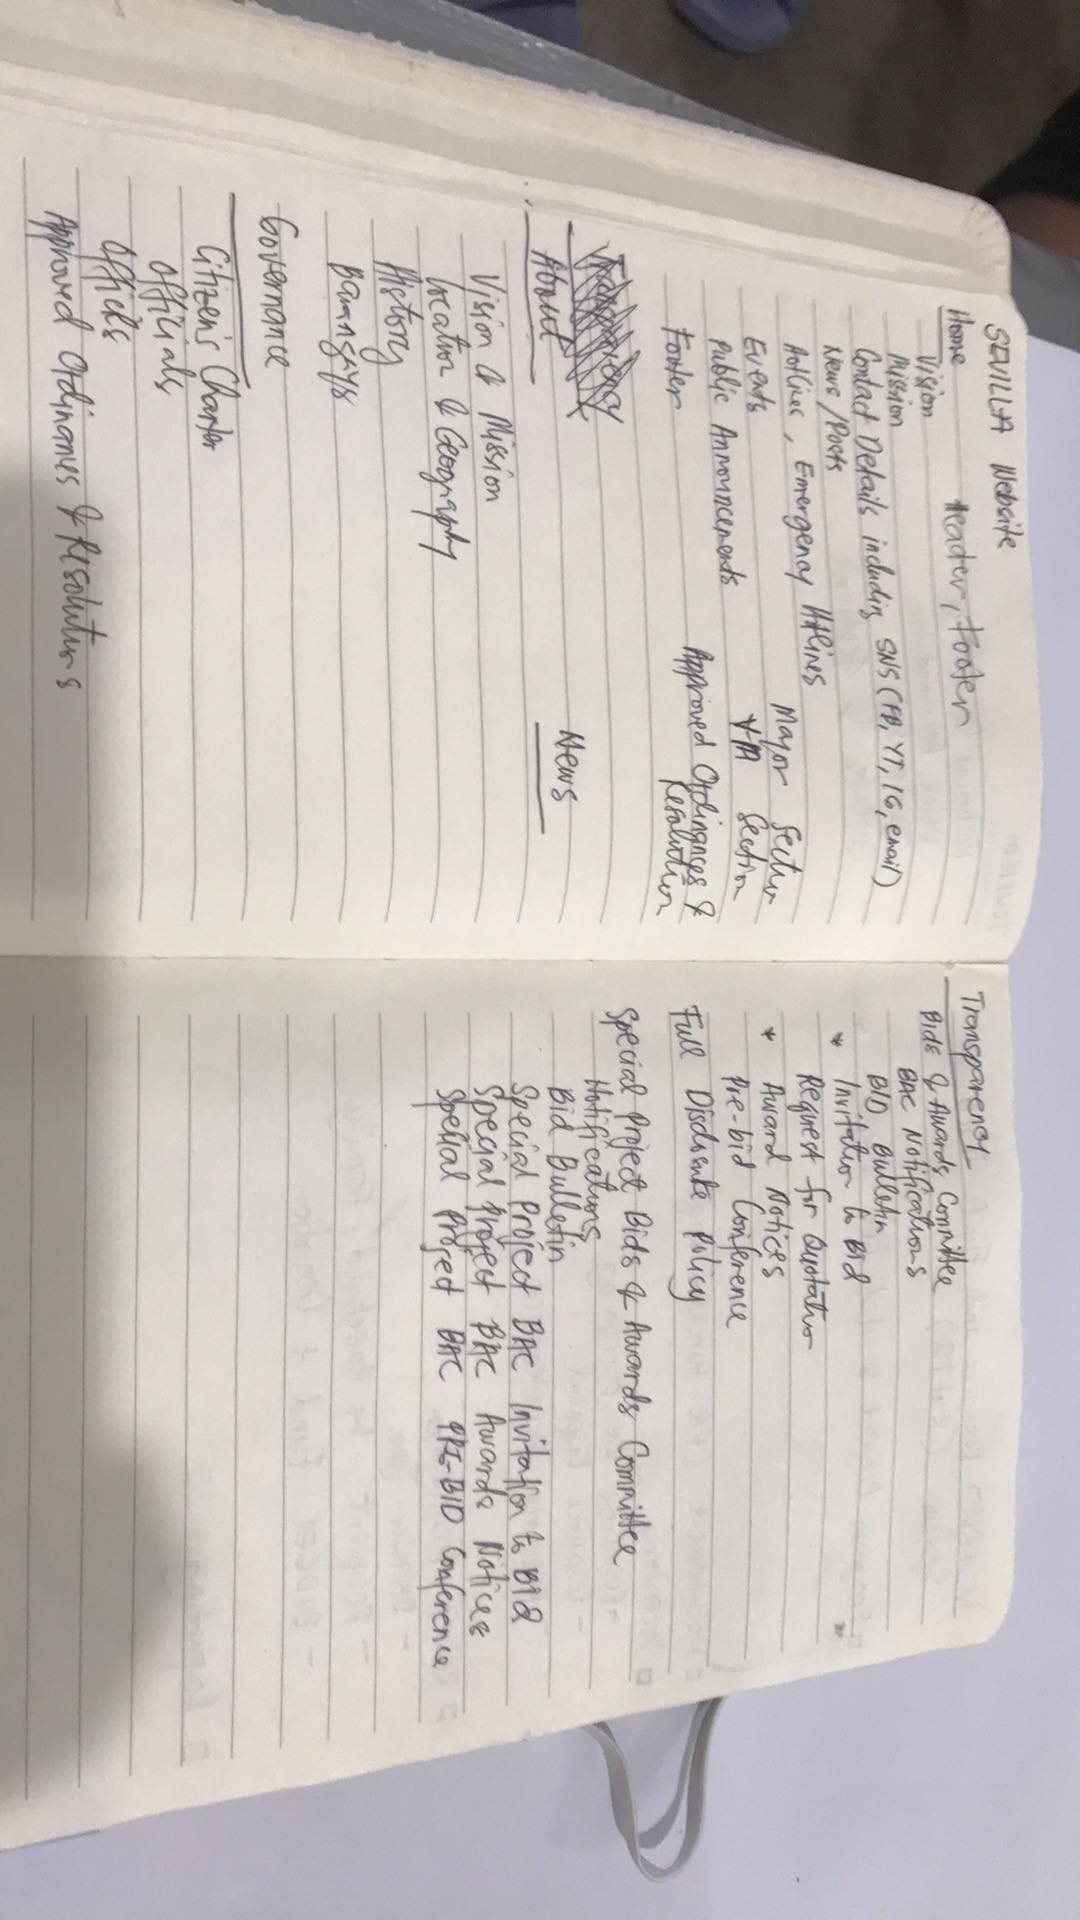 SEVILLA Website
Home
Header, Footer
Vision
Mission
Contact Details including SNS (FB, YT, IG, email)
News/Posts
Hotlines, Emergency Hotlines
Events
Public Announcements
Footer
Mayor Section
VM Section
Approved Ordinances &
Resolution
Transparency
About
News
Vision & Mission
Location & Geography
History
Barangays
Governance
Citizen's Charter
Officials
Offices
Approved Ordinances & Resolutions
Transparency
Bids & Awards Committee
BAC Notifications
BID Bulletin
* Invitation to Bid
Request for Quotation
* Award Notices
Pre-bid Conference
Full Disclosure Policy
Special Project Bids & Awards Committee
Notifications
Bid Bulletin
Special Project BAC Invitation to BID
Special Project BAC Awards Notices
Special Project BAC PRE-BID Conference